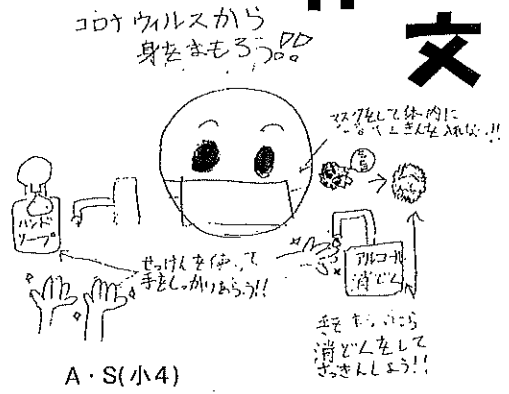 コロナウィルスから
身をまもろう!!
文
マスクをして体内に
きんを入れない!!
菌
ハンド
ソープ
せっけんを使って
手をしっかりあらう!!
アルコール
消どく
消どくをして
さっきんしよう!!
A・S(小4)